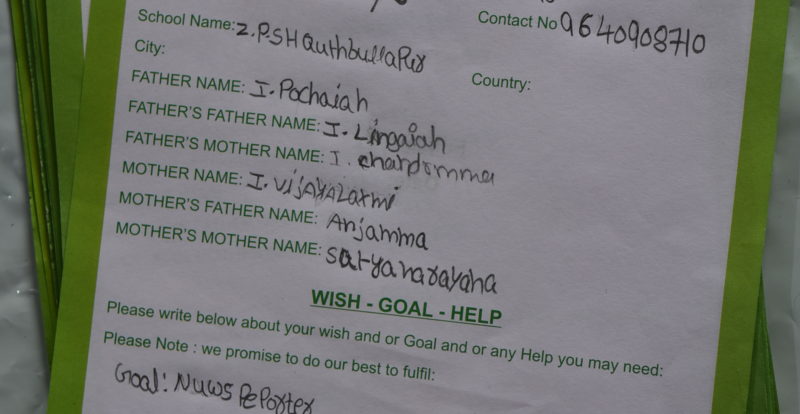 School Name: Z.P.S H Quthbullapur
Contact No 9640908710
City:
Country:
FATHER NAME: I. Pochaiah
FATHER'S FATHER NAME: I. Lingaiah
FATHER'S MOTHER NAME: I. chandramma
MOTHER NAME: I. VIJAYALAXMI
MOTHER'S FATHER NAME: Anjamma
MOTHER'S MOTHER NAME: Satyanarayana
WISH - GOAL - HELP
Please write below about your wish and or Goal and or any Help you may need:
Please Note : we promise to do our best to fulfil:
Goal: NUWS PePorter